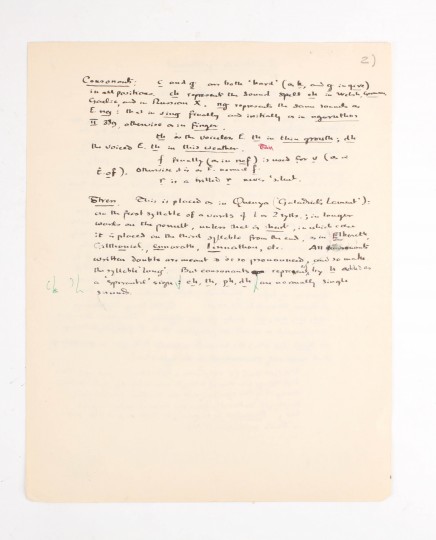 2)
Consonants: c and g are both 'hard' (as k, and g in give)
in all positions. ch represents the sound spelt ch in Welsh, German,
Gaelic, and in Russian X. ng represents the same sounds as
E ng: that in sing finally and initially as in
II 339, otherwise as in finger.
th is the voiceless E. th in thin growth; dh
the voiced E. th in this weather.
f finally (as in nuf) is used for v (as in
E of). otherwise
r is a trilled r never silent.
Stress. This is placed as in Quenya (Galadriel's Lament):
on the first syllable of words of 1 or 2 sylls; in longer
words on the penult, unless that is short, in which case
it is placed on the third syllable from the end, as in
Gilthoniel, etc. All
written doubles are meant to be so pronounced, and so make
the syllable 'long'. But consonants represented by h added as
a 'spirantal' sign: ch, th, ph, dh are normally single
sounds.